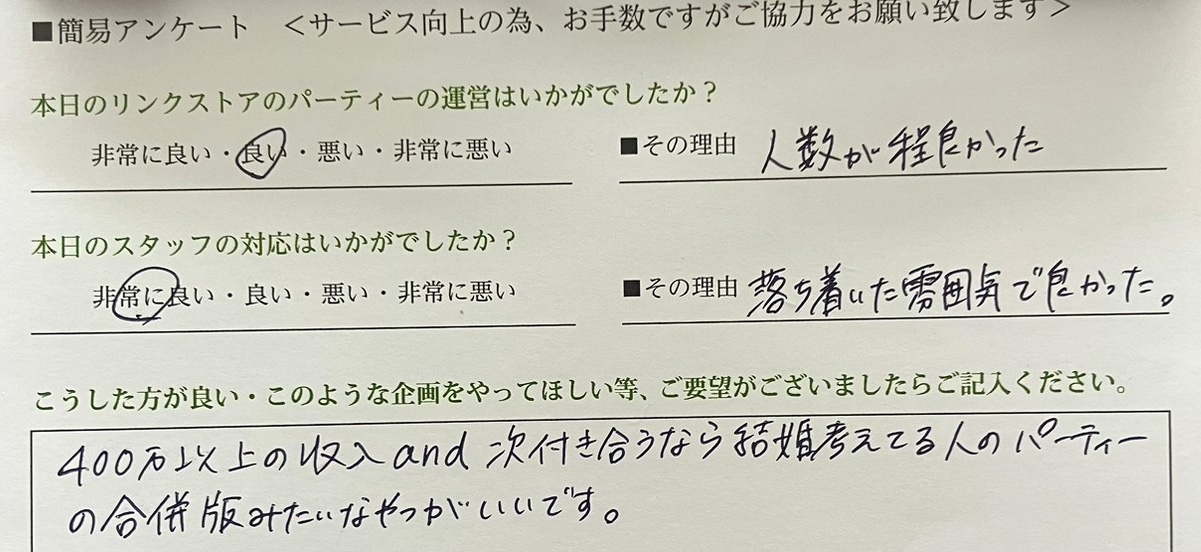 ■簡易アンケート <サービス向上の為、お手数ですがご協力をお願い致します>
本日のリンクストアのパーティーの運営はいかがでしたか？
非常に良い・良い・悪い・非常に悪い ■その理由 人数が程良かった
本日のスタッフの対応はいかがでしたか？
非常に良い・良い・悪い・非常に悪い ■その理由 落ち着いた雰囲気で良かった。
こうした方が良い・このような企画をやってほしい等、ご要望がございましたらご記入ください。
400万以上の収入and次付き合うなら結婚考えてる人のパーティー
の合併版みたいなやつがいいです。